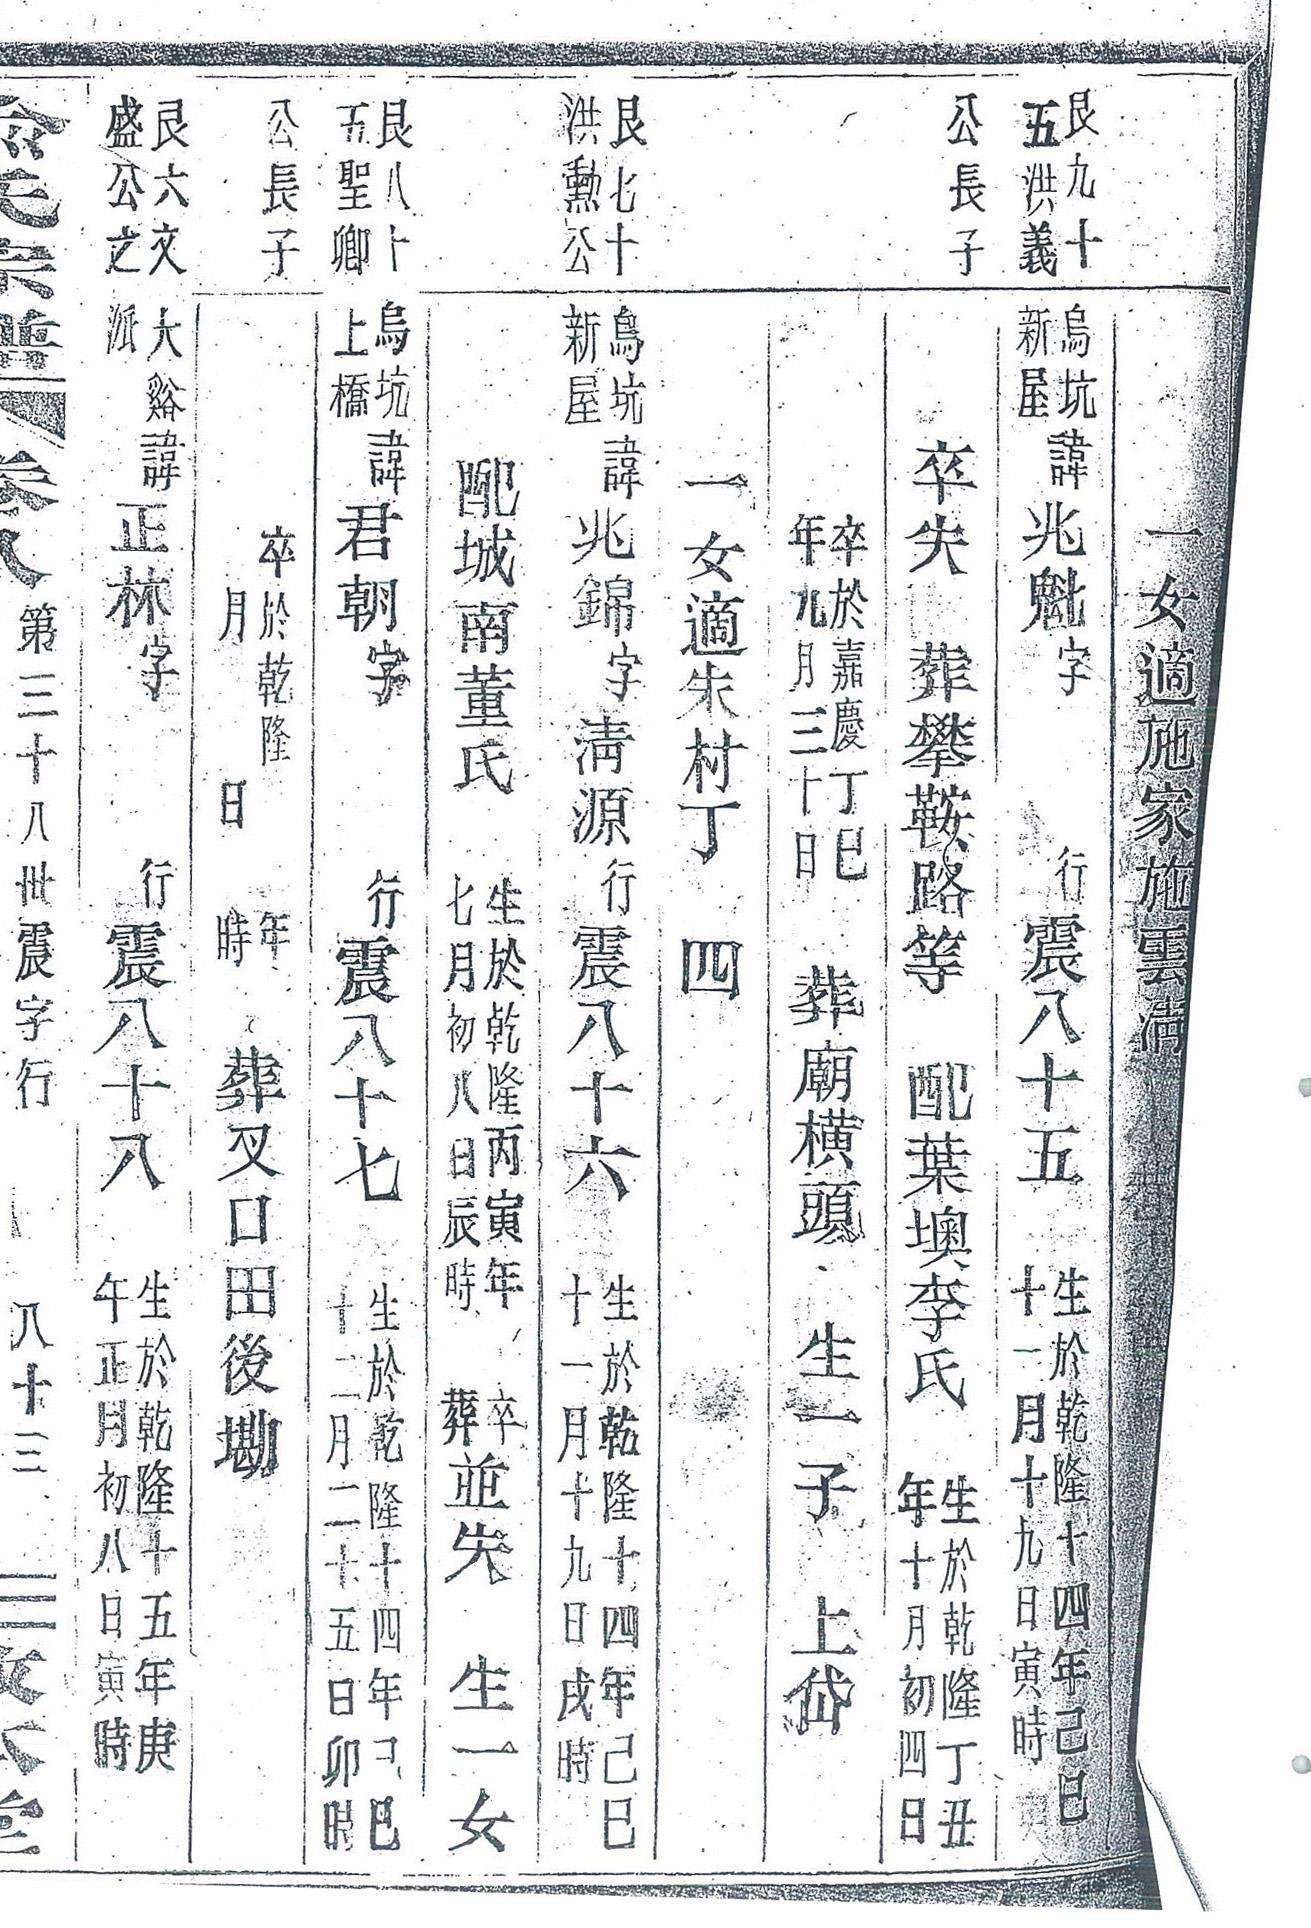 一女適施家施雲淸
艮九十五洪義公長子
烏坑新屋諱兆魁字 行震八十五 生於乾隆十四年己巳十一月十九日寅時
卒失 葬攀鞍路等 配葉墺李氏 生於乾隆丁丑年十月初四日
卒於嘉慶丁巳年九月三十日 葬廟橫頭 生一子 上岱
一女適朱村丁 四
艮七十洪勳公
烏坑新屋諱兆錦字淸源行震八十六 生於乾隆十四年己巳十一月十九日戌時
配城南董氏 生於乾隆丙寅年七月初八日辰時 卒葬並失 生一女
艮八十五聖卿公長子
烏坑上橋諱君朝字 行震八十七 生於乾隆十四年己巳十二月二十五日卯時
卒於乾隆 年 月 日 時 葬叉口田後墈
艮六文盛公之派
大谿諱正林字 行震八十八 生於乾隆十五年庚午正月初八日寅時
氏宗譜 卷八 第三十八卅震字行 八十三 敦本堂